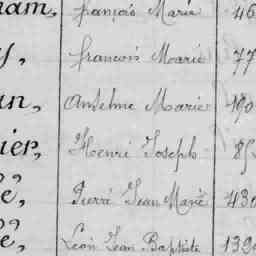 nam, François Marie 46
y, François Marie 77
an, Anselme Marie 190
ier, Henri Joseph 85
e, Pierre Jean Marie 430
e, Léon Jean Baptiste 139